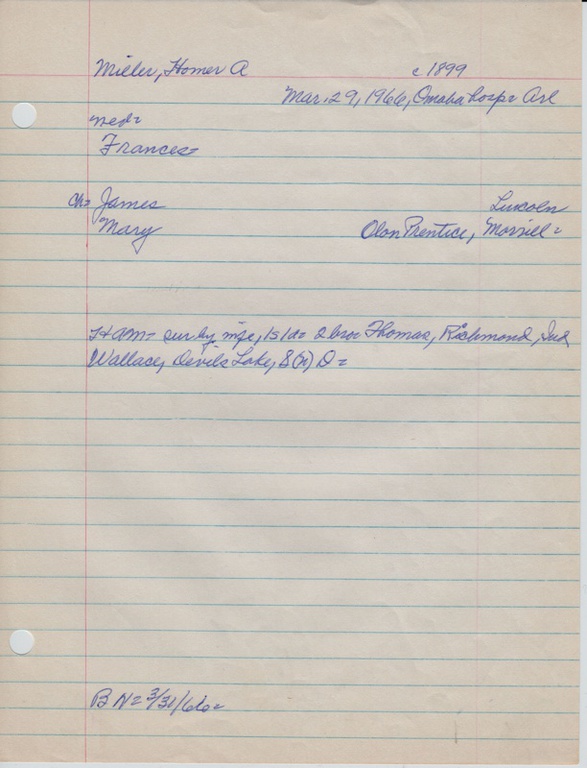 Miller, Homer A c 1899
Mar. 29, 1966, Omaha hosp= Arl
med=
Frances=
ch= James Lincoln
Mary Olon Prentice, Morrill=
HAM= sur by wife, 1s 1d= 2 bro= Thomas, Richmond, Ind
Wallace, Devils Lake, S(N) D=
BN= 3/31/66=